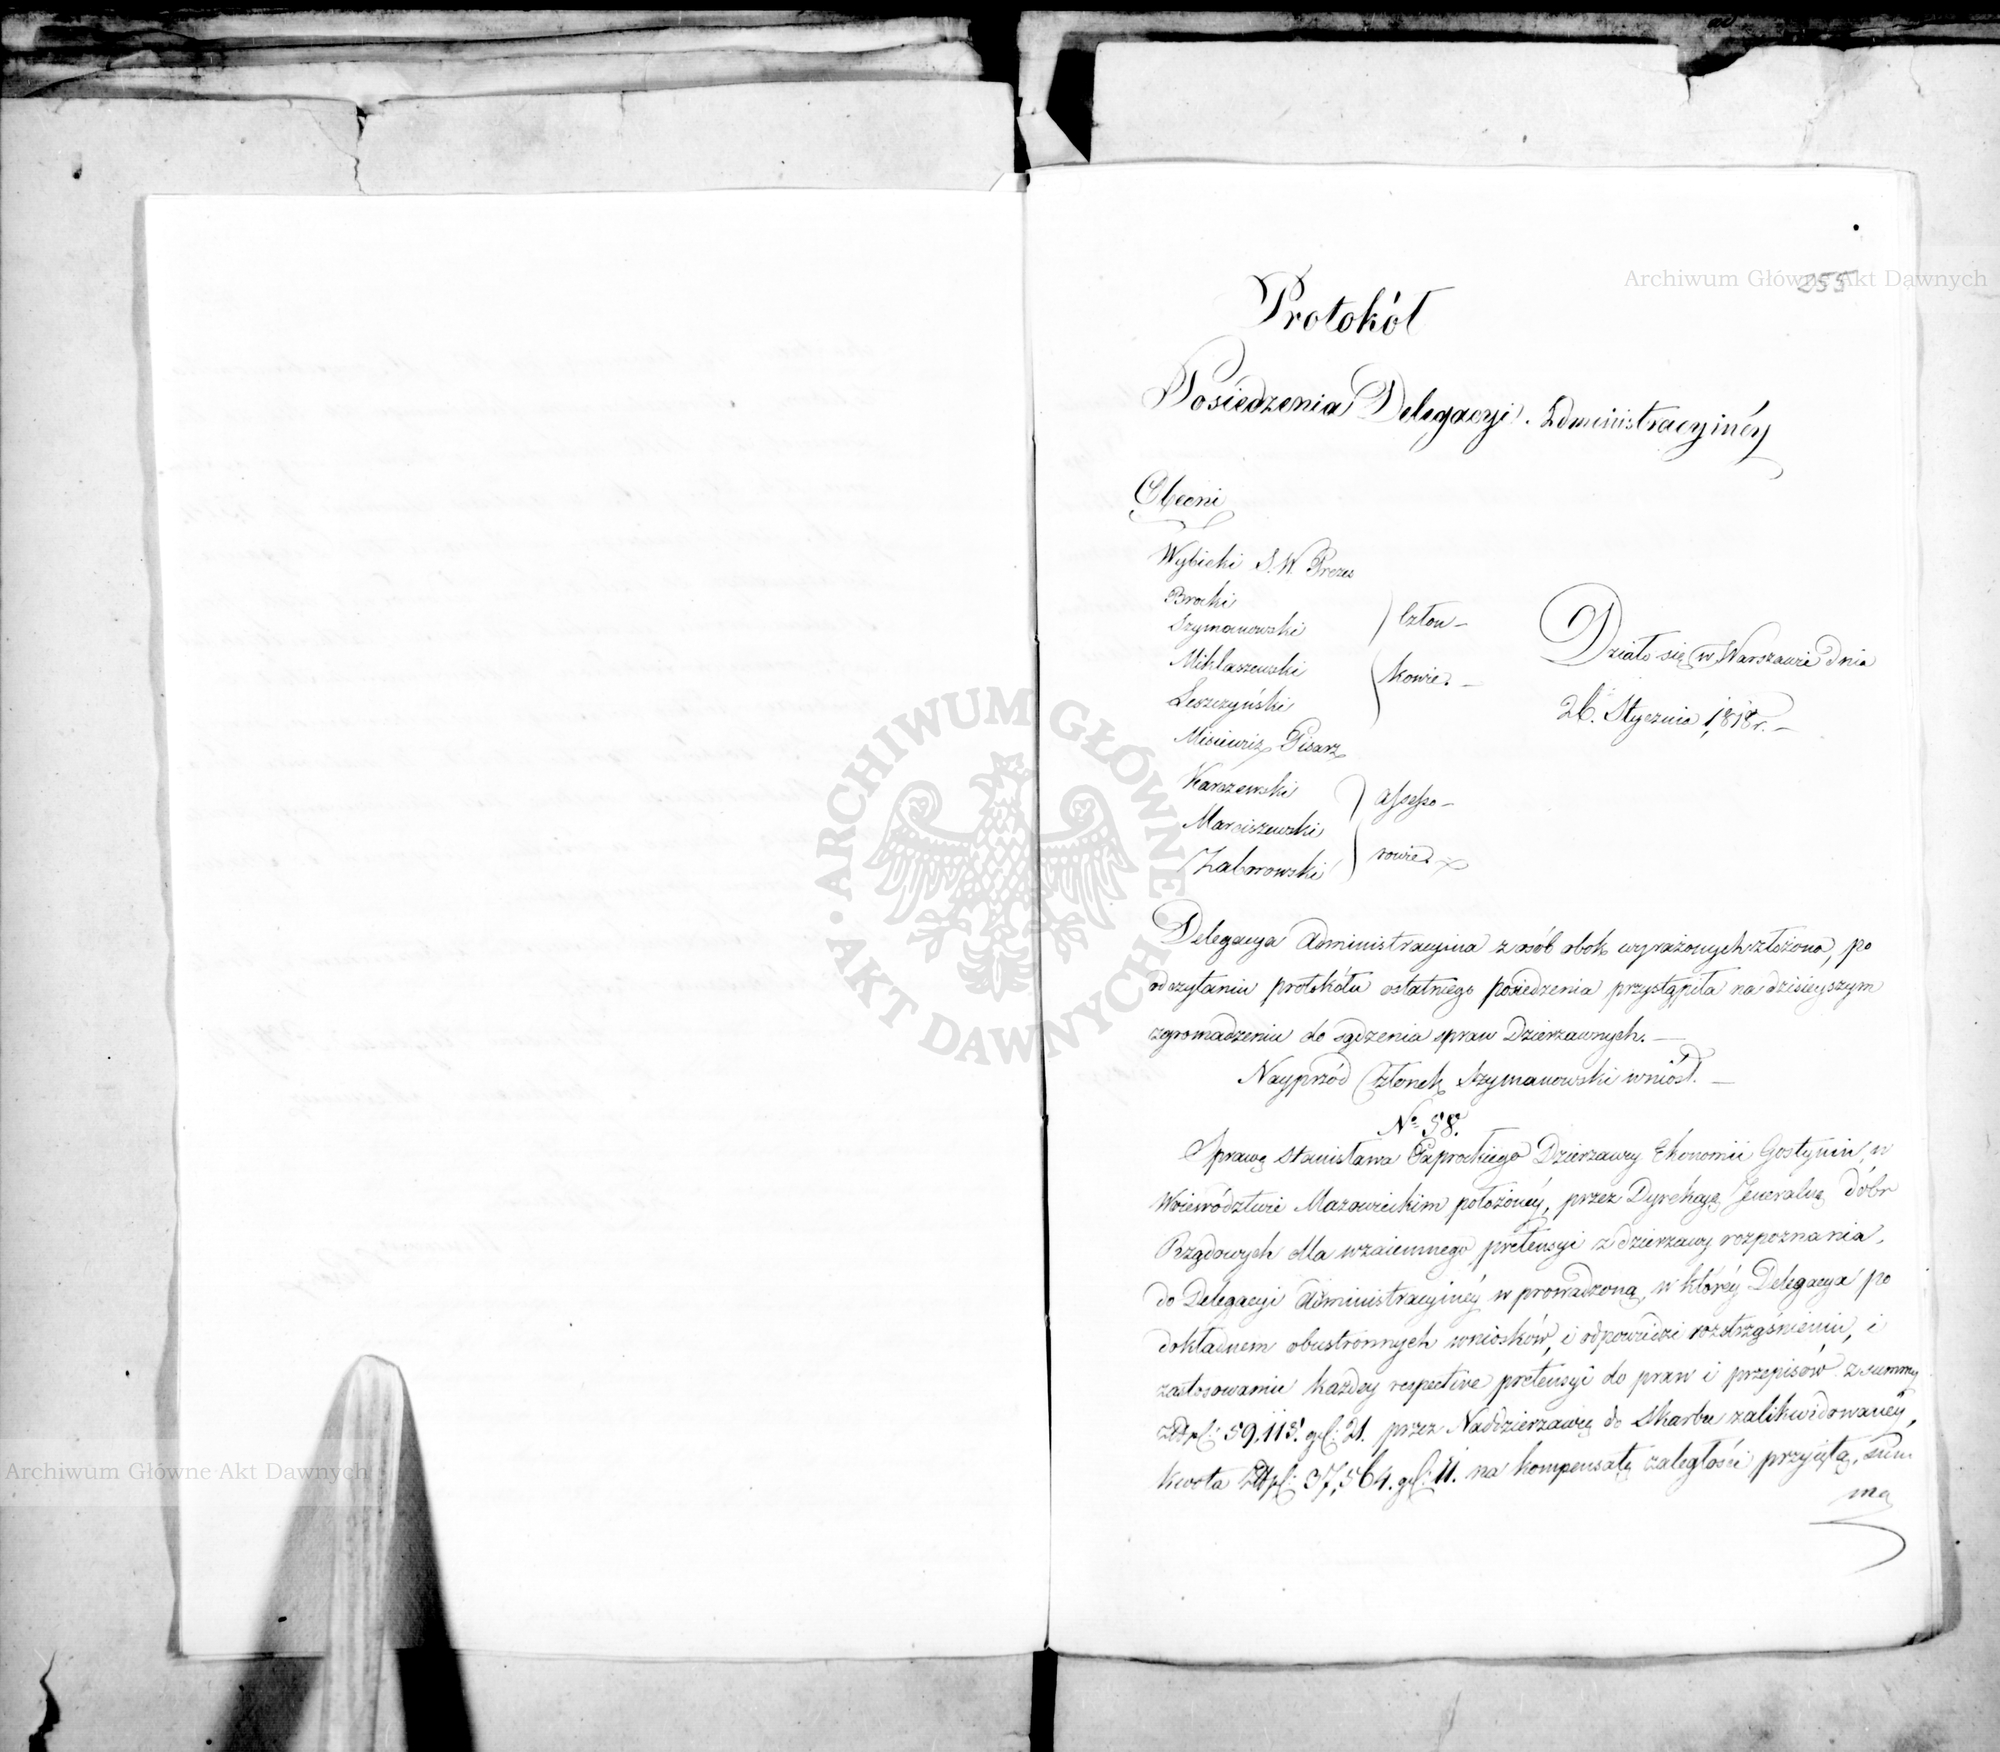 255
Protokół
Posiedzenia Delegacyi Administracyinéy
Obecni
Wybicki S. W. Prezes
Brocki
Szymanowski
Miklaszewski
Leszczyński
Człon-
kowie.
Misiewicz Pisarz
Karczewski
Marciszewski
Zaborowski
Assesso-
rowie.
Działo się w Warszawie dnia
26. Stycznia 1818 r.
Delegacya Administracyina z osób obok wyrażonych złożona, po
odczytaniu protokółu ostatniego posiedzenia przystąpiła na dzisieyszym
zgromadzeniu do sądzenia spraw Dzierzawnych.
Nayprzód Członek Szymanowski wniósł.
No. 58.
Sprawę Stanisława Paprockiego Dzierzawcy Ekonomii Gostynin, w
Woiewództwie Mazowieckim położonéy, przez Dyrekcyą Jeneralną dóbr
Rządowych dla wzaiemnego pretensyi z dzierzawy rozpoznania,
do Delegacyi Administracyinéy wprowadzoną, w któréy Delegacya po
dokładnem obustronnych wniosków, i odpowiedzi roztrząśnieniu, i
zastosowaniu każdey respective pretensyi do praw i przepisów z summy
Złpl: 59,115. gl: 21. przez Naddzierzawcę do Skarbu zalikwidowanéy,
kwota Złpl: 37,564. gl: 11. na kompensatę zaległości przyiętą, sum
ma
Archiwum Główne Akt Dawnych
Archiwum Główne Akt Dawnych
ARCHIWUM GŁÓWNE AKT DAWNYCH